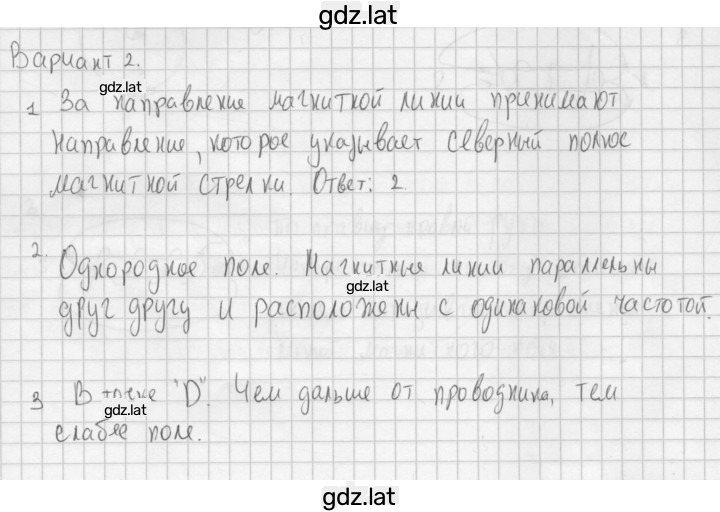 gdz.lat
Вариант 2.
gdz.lat
1 За направление магнитной линии принимают
направление, которое указывает северный полюс
магнитной стрелки. Ответ: 2
2. Однородное поле. Магнитные линии параллельны
gdz.lat
друг другу и расположены с одинаковой частотой.
3 В точке "D". Чем дальше от проводника, тем
gdz.lat
слабее поле.
gdz.lat